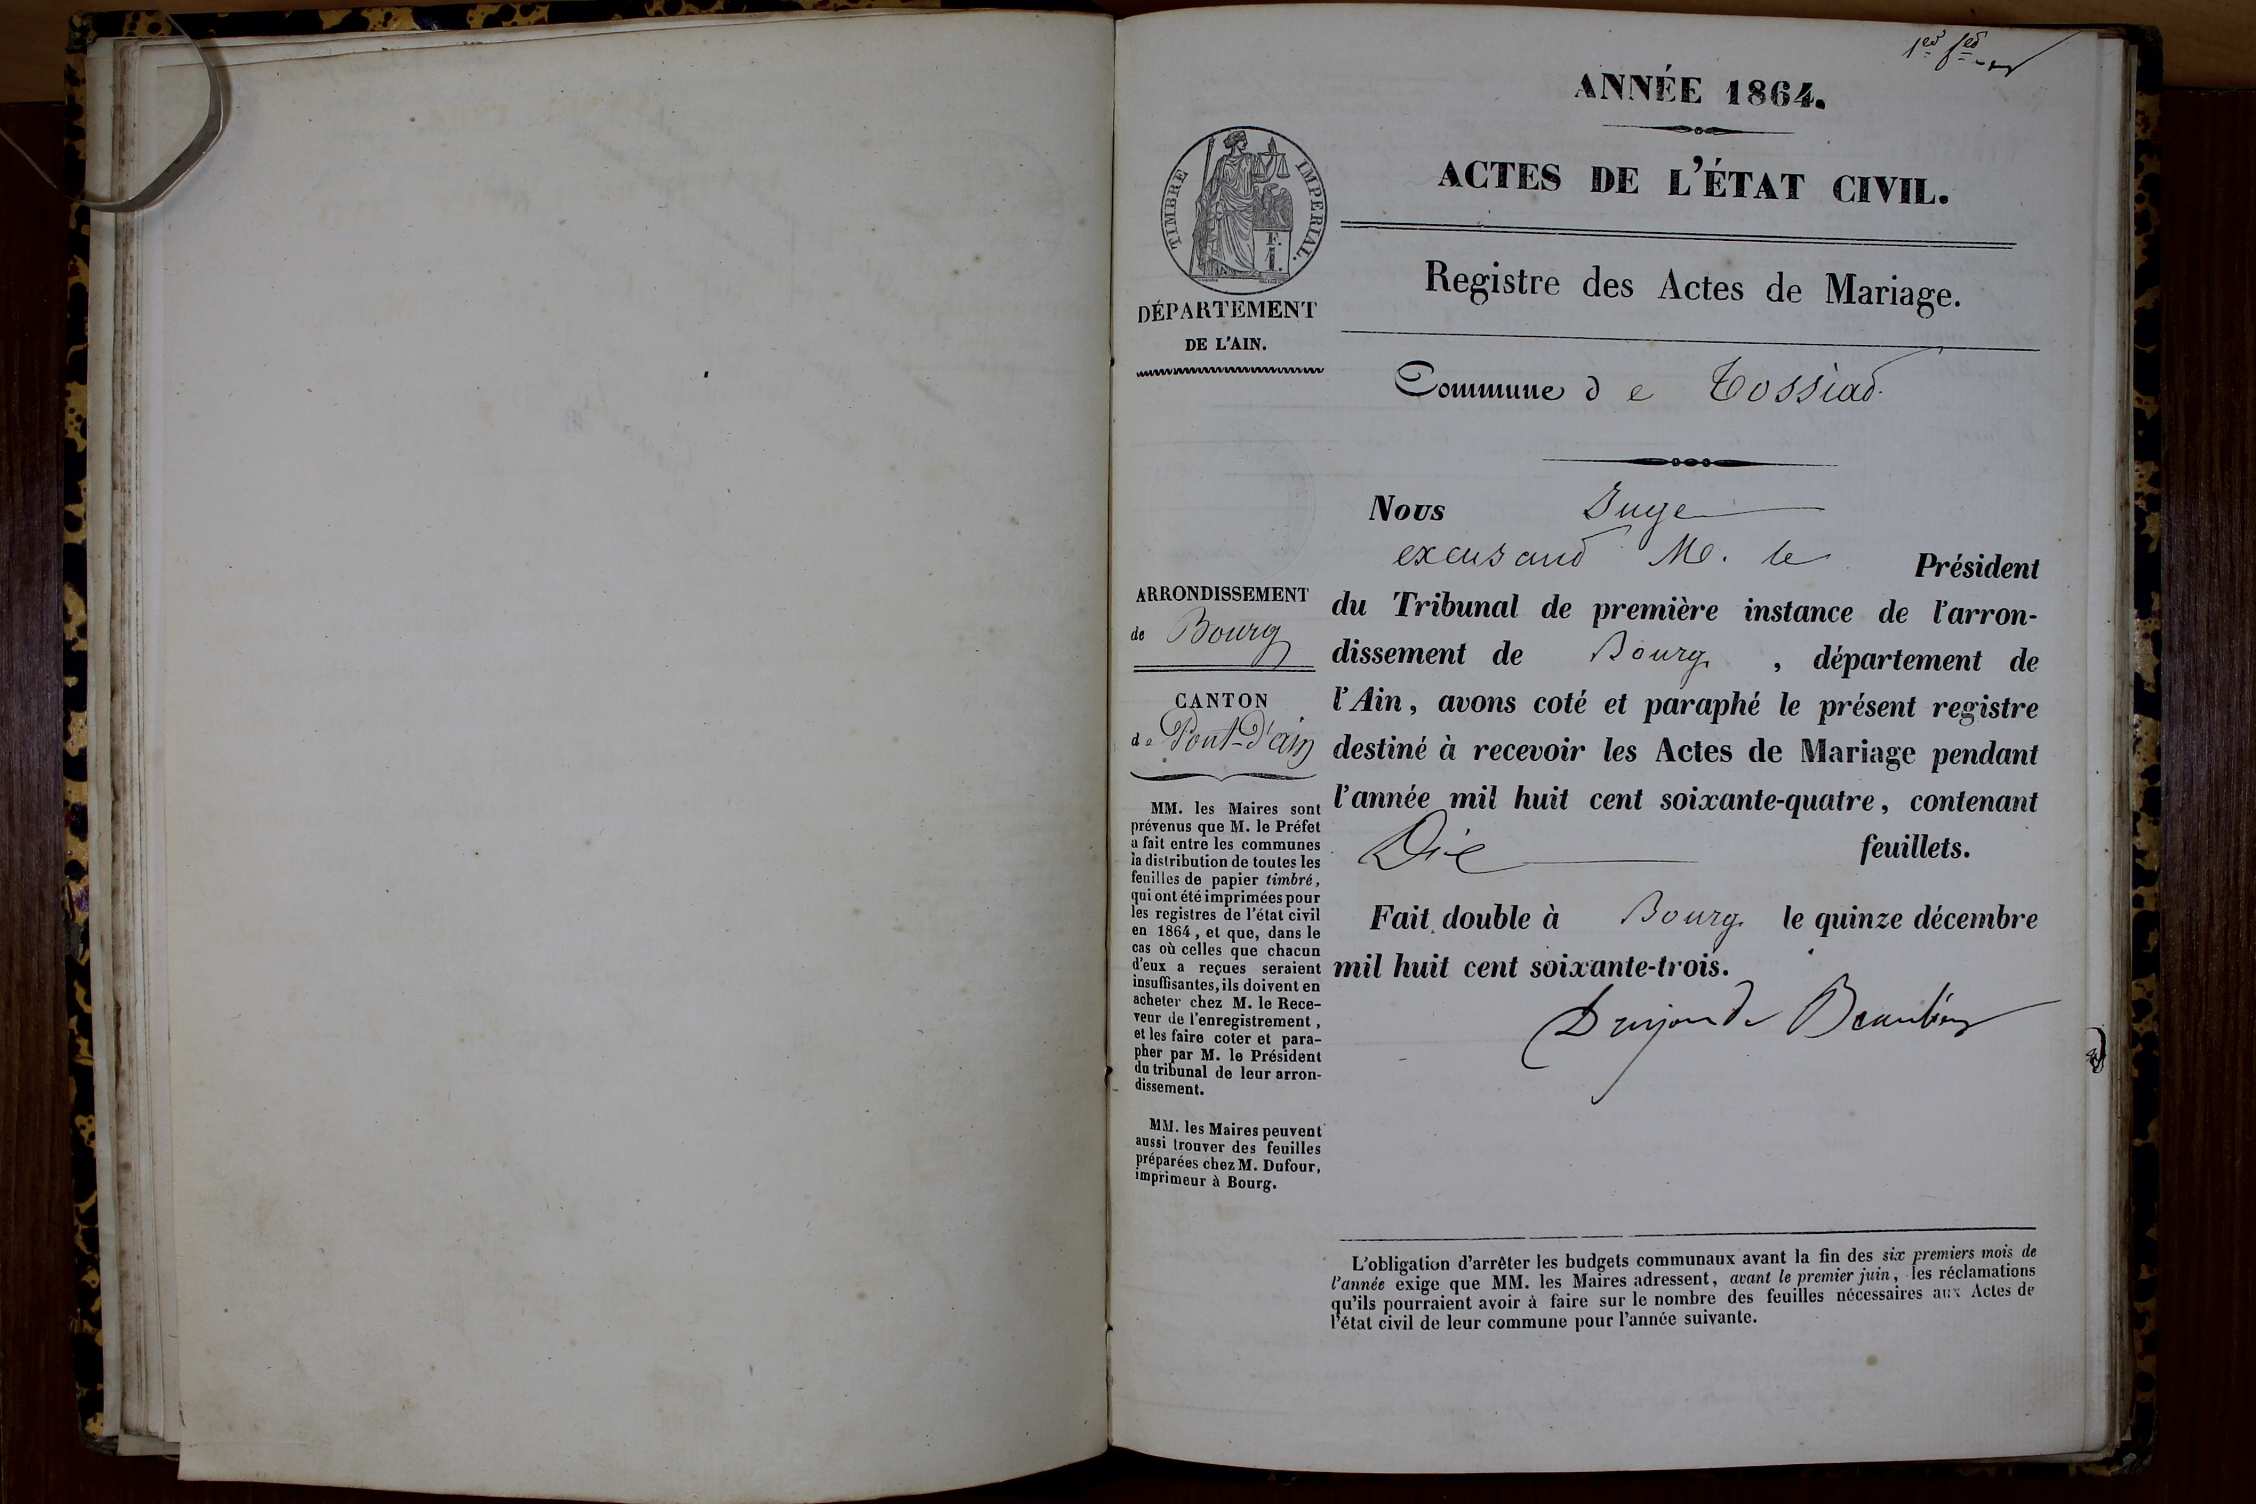 1er f.et
ANNÉE 1864.
ACTES DE L'ÉTAT CIVIL.
Registre des Actes de Mariage.
Commune de Tossiat
TIMBRE IMPERIAL.
F.
1.
DÉPARTEMENT
DE L'AIN.
ARRONDISSEMENT
de Bourg
CANTON
de Pont-d'ain
MM. les Maires sont
prévenus que M. le Préfet
a fait entre les communes
la distribution de toutes les
feuilles de papier timbré,
qui ont été imprimées pour
les registres de l'état civil
en 1864, et que, dans le
cas où celles que chacun
d'eux a reçues seraient
insuffisantes, ils doivent en
acheter chez M. le Rece-
veur de l'enregistrement,
et les faire coter et para-
pher par M. le Président
du tribunal de leur arron-
dissement.
MM. les Maires peuvent
aussi trouver des feuilles
préparées chez M. Dufour,
imprimeur à Bourg.
Nous Juge
excusant M. le Président
du Tribunal de première instance de l'arron-
dissement de Bourg, département de
l'Ain, avons coté et paraphé le présent registre
destiné à recevoir les Actes de Mariage pendant
l'année mil huit cent soixante-quatre, contenant
Dix feuillets.
Fait double à Bourg le quinze décembre
mil huit cent soixante-trois.
L'obligation d'arrêter les budgets communaux avant la fin des six premiers mois de
l'année exige que MM. les Maires adressent, avant le premier juin, les réclamations
qu'ils pourraient avoir à faire sur le nombre des feuilles nécessaires aux Actes de
l'état civil de leur commune pour l'année suivante.